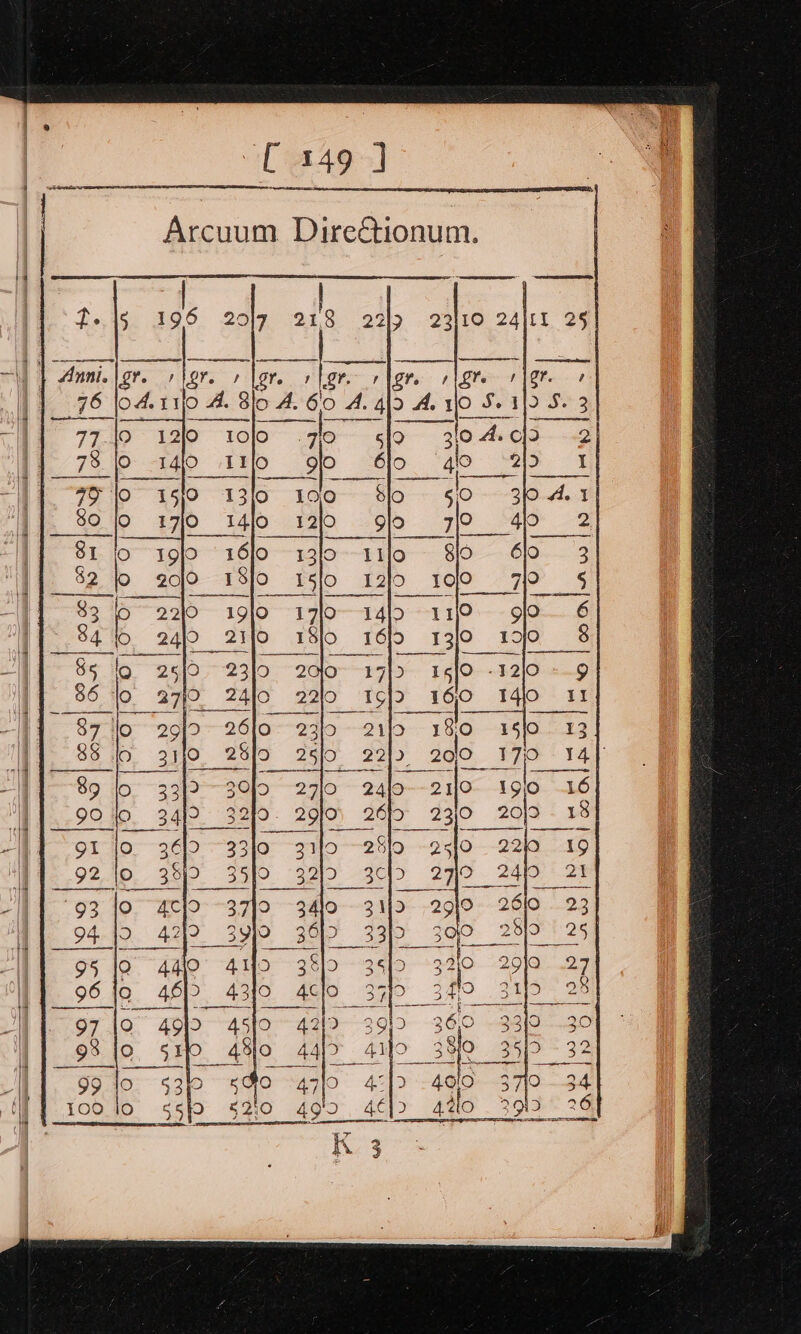 [ 149 ]
Arcuum Directionum.
T. 5 19 6 20 7 21 8 22 9 23 10 24 11 25
Anni. gr. ' gr. ' gr. ' gr. ' gr. ' gr. ' gr. '
76 0 A. 11 0 A. 8 0 A. 6 0 A. 4 0 A. 1 0 S. 1 0 S. 3
77 0 12 0 10 0 7 0 5 0 3 0 A. 0 0 2
78 0 14 0 11 0 9 0 6 0 4 0 2 0 1
79 0 15 0 13 0 10 0 8 0 5 0 3 0 A. 1
80 0 17 0 14 0 12 0 9 0 7 0 4 0 2
81 0 19 0 16 0 13 0 11 0 8 0 6 0 3
82 0 20 0 18 0 15 0 12 0 10 0 7 0 5
83 0 22 0 19 0 17 0 14 0 11 0 9 0 6
84 0 24 0 21 0 18 0 16 0 13 0 10 0 8
85 0 25 0 23 0 20 0 17 0 15 0 12 0 9
86 0 27 0 24 0 22 0 19 0 16 0 14 0 11
87 0 29 0 26 0 23 0 21 0 18 0 15 0 13
88 0 31 0 28 0 25 0 22 0 20 0 17 0 14
89 0 33 0 30 0 27 0 24 0 21 0 19 0 16
90 0 34 0 32 0 29 0 26 0 23 0 20 0 18
91 0 36 0 33 0 31 0 28 0 25 0 22 0 19
92 0 38 0 35 0 32 0 30 0 27 0 24 0 21
93 0 40 0 37 0 34 0 31 0 29 0 26 0 23
94 0 42 0 39 0 36 0 33 0 30 0 28 0 25
95 0 44 0 41 0 38 0 35 0 32 0 29 0 27
96 0 46 0 43 0 40 0 37 0 34 0 31 0 28
97 0 49 0 45 0 42 0 39 0 36 0 33 0 30
98 0 51 0 48 0 44 0 41 0 38 0 35 0 32
99 0 53 0 50 0 47 0 43 0 40 0 37 0 34
100 0 55 0 52 0 49 0 46 0 42 0 39 0 36
K 3